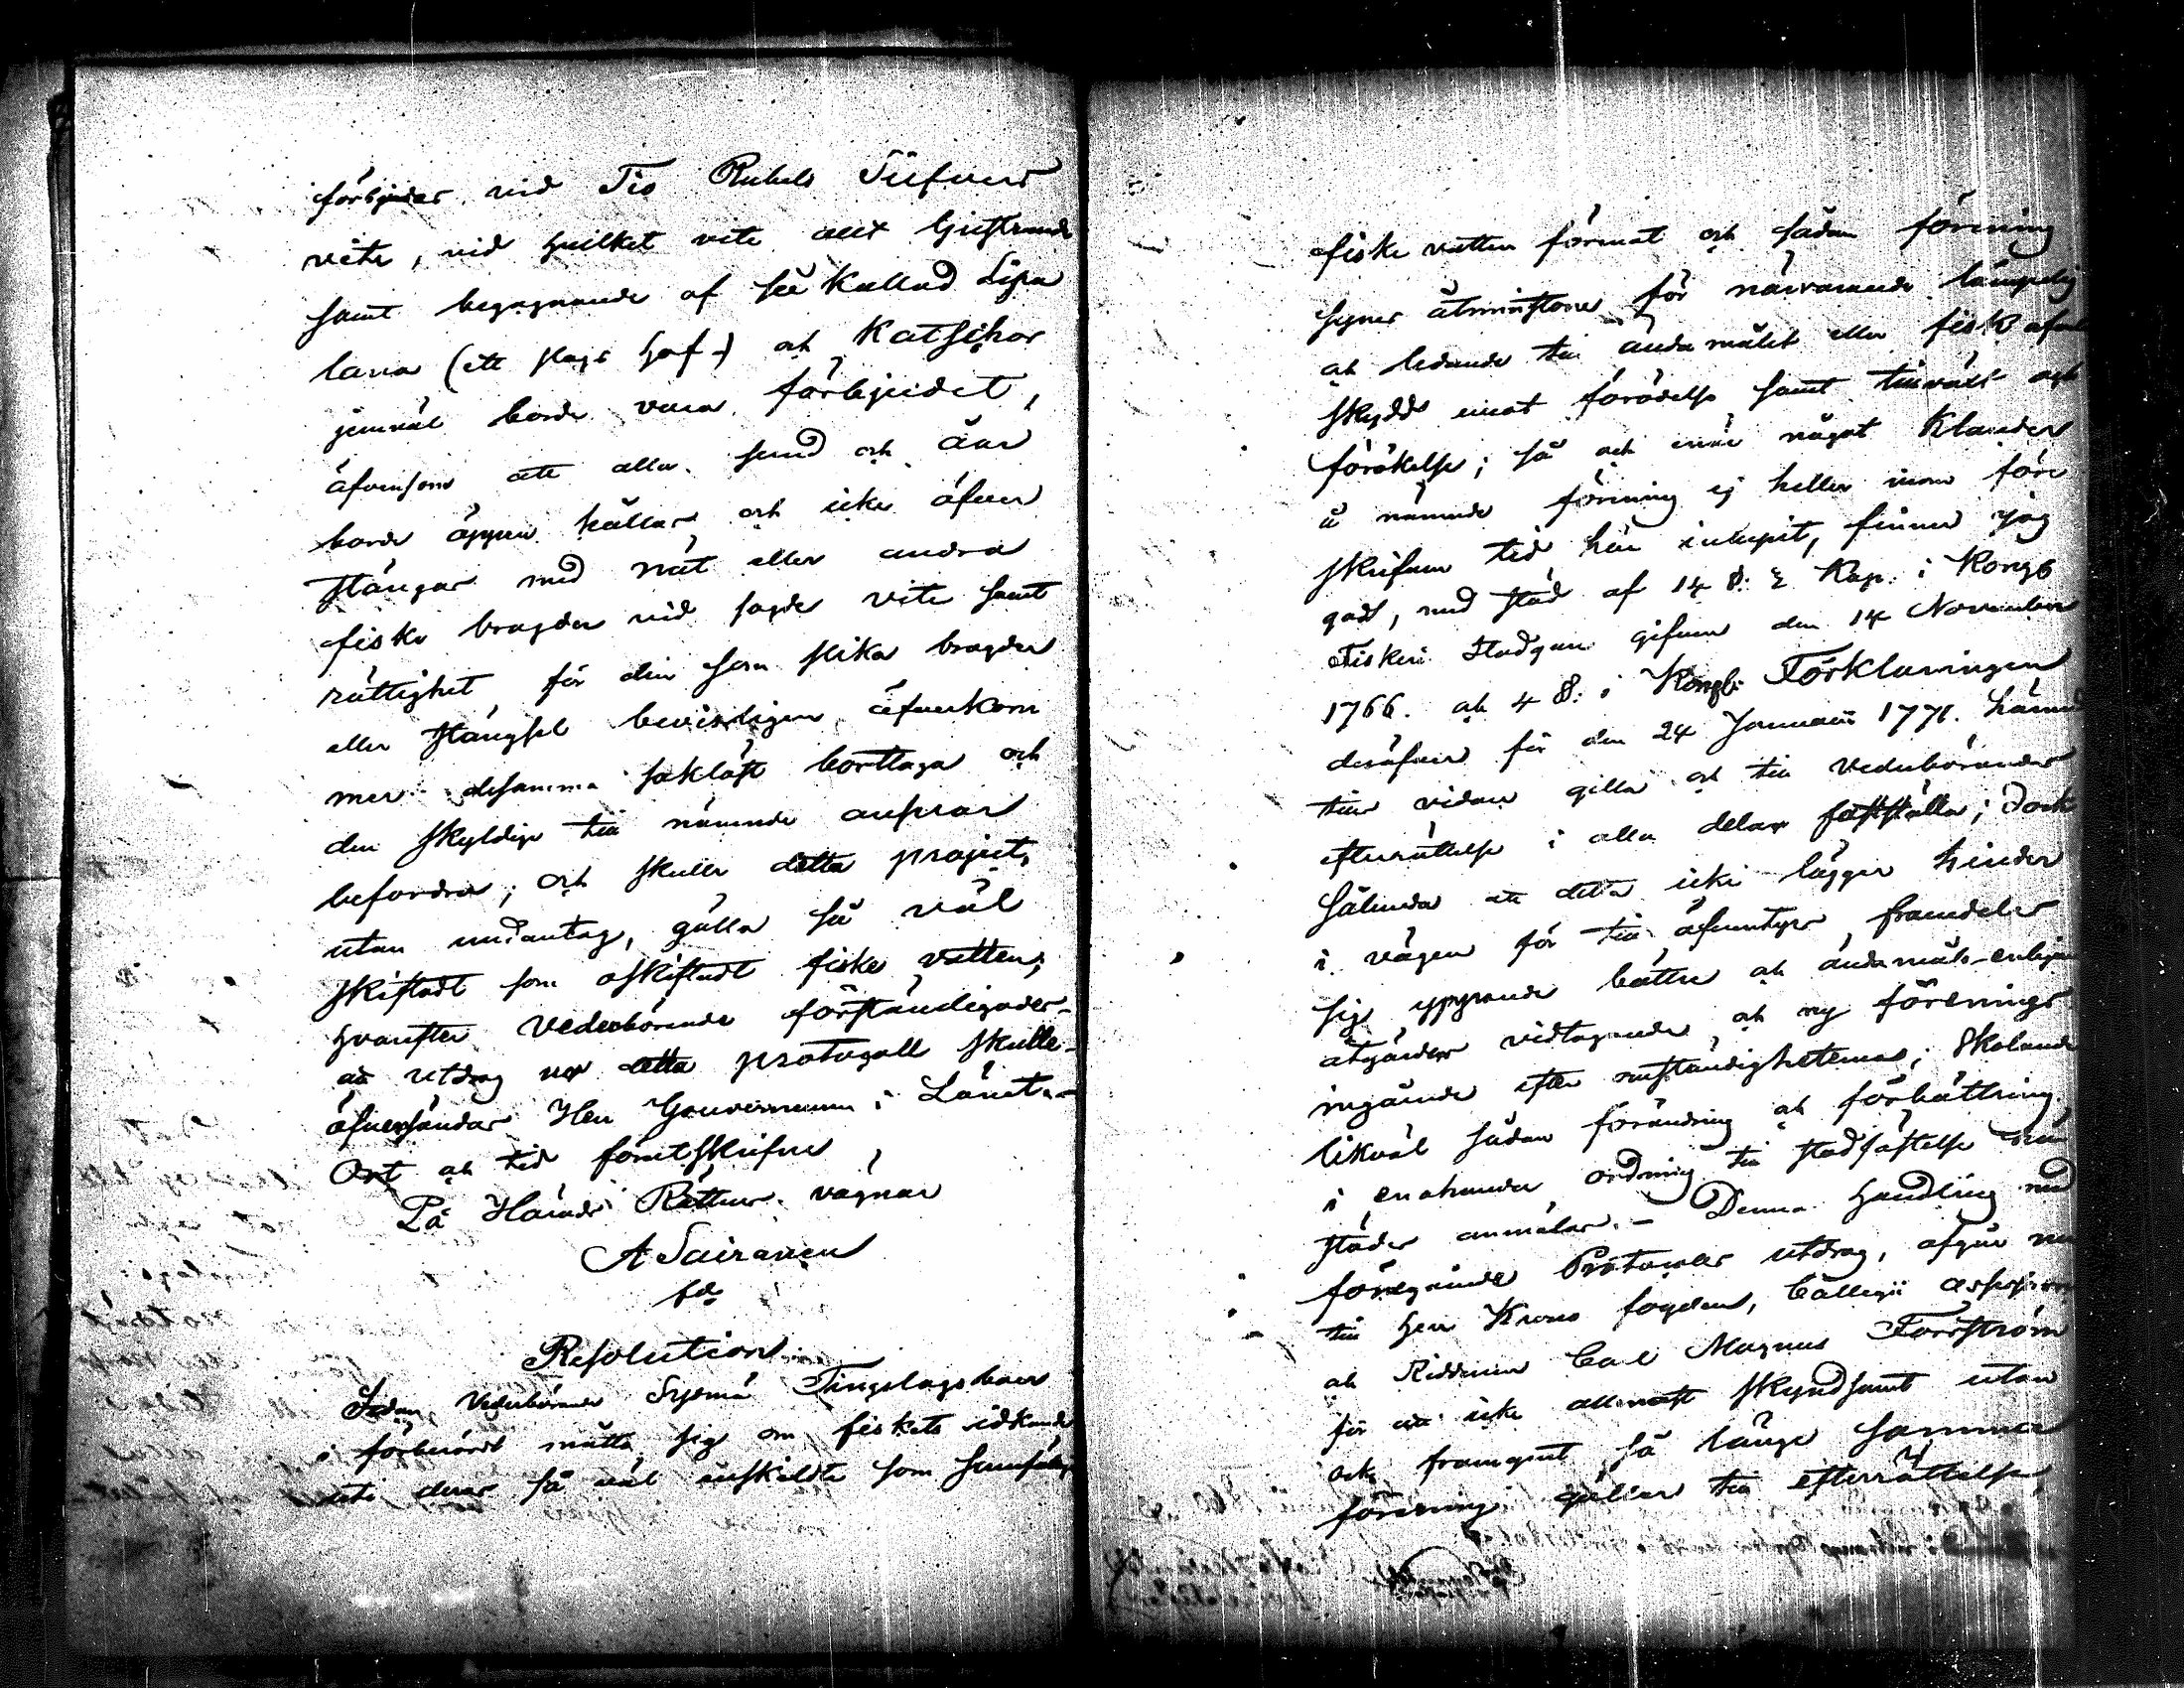 förbjudas vid Tio Rubels Silfver
vite, vid hvilket vite allt ljustrande
samt begagnande af så kallad Lipa
lana (ett slags haf-) och Katsikor
jemväl borde vara förbjudet,
äfvensom att alla sund och åar
borde öppen hållas och icke öfver
stängas med nät eller andra
fiske bragder vid sagde vite samt
rättighet för den som slika bragder
eller stängsel bevisligen öfverkom
mer desamma saklöst borttaga och
den skyldige till nämnde ansvar
befordra; och skulle detta project,
utan undantag, gälla så väl
skiftadt som oskiftadt fiske vatten;
hvarefter Vederbörande förständigades
att utdrag ur detta protocoll skulle
öfversändas Herr Gouverneuren i Länet.-
Ort och tid förutskrifne
På Härads Rättens vägnar
A Sairanen
Resolution.
Sedan Vederbörande Sysmä Tingslagsboer
i förberörde måtto sig om fiskets idkande
uti deras så väl enskildte som samfälda
fiske vatten förenat och sådan förening
synes åtminstone för närvarande lämpelig
och ledande till ändamålet eller fisk afvelns
skydd emot förödelse samt tillväxt och
förökelse; så och enär något klander
å nämnde förening ej heller inom före
skrifven tid här inlupit, finner jag
godt, med stöd af 14 §. 2 Kap. i Kongl
Fiskeri Stadgan gifven den 14 November
1766. och 4 §. i Kongl: Förklaringen
deröfver för den 24 Januarii 1771. härmed
till vidare gilla och till Vederbörandes
efterrättelse i alla delar fastställa; dock
sålunda att detta icke lägger hinder
i vägen för till äfventyrs framdeles
sig yppande bättre och ändamåls-enligare
åtgärders vidtagande och ny förenings
ingående efter omständigheterna; Skolande
likväl sådan förändring och förbättring
i enahanda ordning till stadfästelse här
städes anmälas.- Denna Handling med
föregående Protocolls utdrag, afgår nu
till Herr Krono fogden, Collegii assessoren
och Riddaren Carl Magnus Forsström
för att icke allenast skyndsamt utan
ock framgent så länge samma
förening gäller till efterrättelse